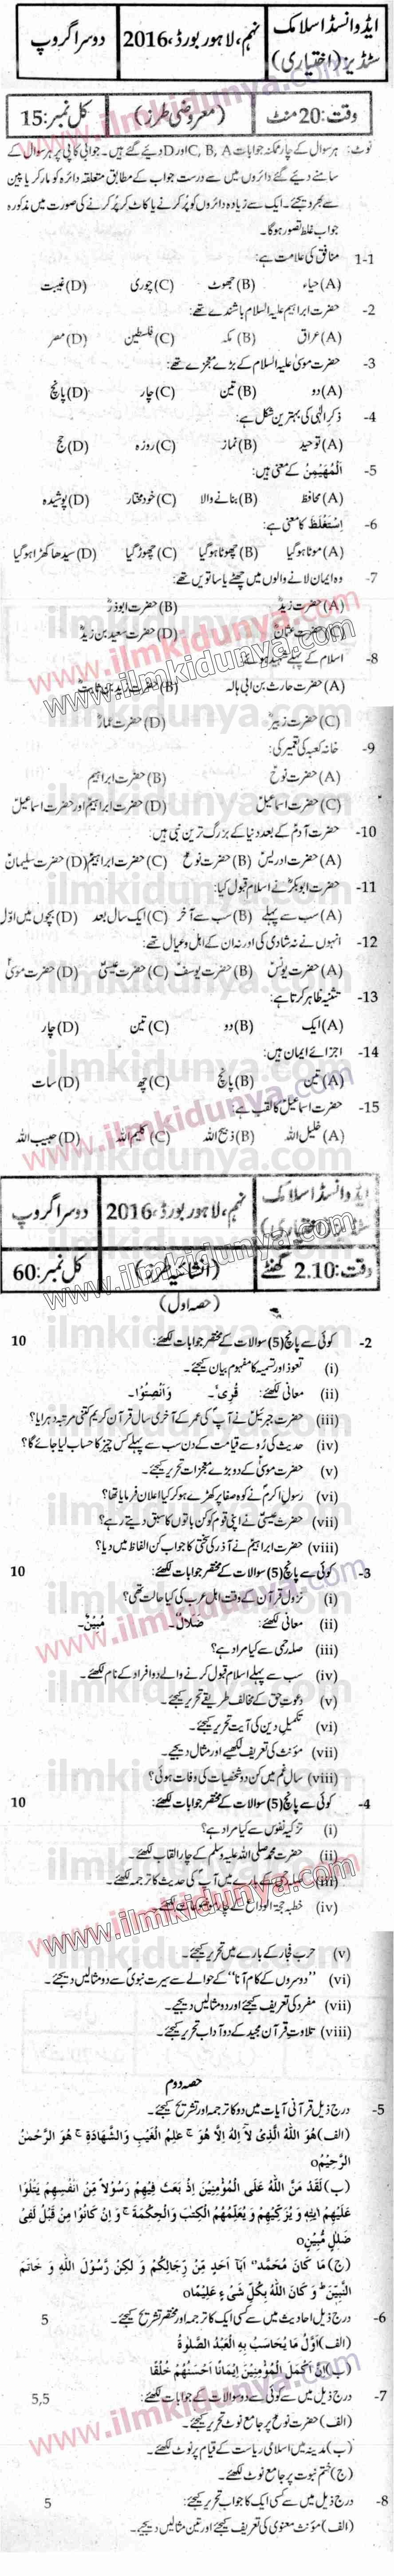 ایڈوانسڈ اسلامک سٹڈیز (اختیاری)
نہم، لاہور بورڈ، 2016
دوسرا گروپ
وقت: 20 منٹ
(معروضی طرز)
کل نمبر: 15
نوٹ: ہر سوال کے چار ممکنہ جوابات C, B, A اور D دیئے گئے ہیں۔ جوابی کاپی پر ہر سوال کے
سامنے دیئے گئے دائروں میں سے درست جواب کے مطابق متعلقہ دائرہ کو مارکر یا پین
سے بھر دیجئے۔ ایک سے زیادہ دائروں کو پُر کرنے یا کاٹ کر پُر کرنے کی صورت میں مذکورہ
جواب غلط تصور ہوگا۔
1-1 منافق کی علامت ہے:
(A) حیاء (B) جھوٹ (C) چوری (D) غیبت
2- حضرت ابراہیم علیہ السلام باشندے تھے:
(A) عراق (B) مکہ (C) فلسطین (D) مصر
3- حضرت موسیٰ علیہ السلام کے بڑے معجزے تھے:
(A) دو (B) تین (C) چار (D) پانچ
4- ذکر الٰہی کی بہترین شکل ہے:
(A) توحید (B) نماز (C) روزہ (D) حج
5- اَلْمُهَيْمِنُ کے معنی ہیں:
(A) محافظ (B) بنانے والا (C) خودمختار (D) پوشیدہ
6- اِسْتَغْلَظَ کا معنی ہے:
(A) موٹا ہوگیا (B) چھوٹا ہوگیا (C) چھوڑ گیا (D) سیدھا کھڑا ہوگیا
7- وہ ایمان لانے والوں میں چھٹے یا ساتویں تھے:
(A) حضرت زیدؓ (B) حضرت ابوذرؓ
(C) حضرت عثمانؓ (D) حضرت سعید بن زیدؓ
8- اسلام کے پہلے شہید
(A) حضرت حارث بن ابی ہالہ (B) حضرت زید بن ثابتؓ
(C) حضرت زبیرؓ (D) حضرت عمارؓ
9- خانہ کعبہ کی تعمیر کی:
(A) حضرت نوحؑ (B) حضرت ابراہیم
(C) حضرت اسماعیلؑ (D) حضرت ابراہیمؑ اور حضرت اسماعیلؑ
10- حضرت آدمؑ کے بعد دنیا کے بزرگ ترین نبی ہیں:
(A) حضرت ادریسؑ (B) حضرت نوحؑ (C) حضرت ابراہیمؑ (D) حضرت سلیمانؑ
11- حضرت ابوبکرؓ نے اسلام قبول کیا:
(A) سب سے پہلے (B) سب سے آخر (C) ایک سال بعد (D) بچوں میں اوّل
12- انہوں نے نہ شادی کی اور نہ ان کے اہل و عیال تھے:
(A) حضرت یونسؑ (B) حضرت یوسفؑ (C) حضرت عیسیٰؑ (D) حضرت موسیٰؑ
13- تثنیہ ظاہر کرتا ہے:
(A) ایک (B) دو (C) تین (D) چار
14- اجزائے ایمان ہیں:
(A) تین (B) پانچ (C) چھ (D) سات
15- حضرت اسماعیلؑ کا لقب ہے:
(A) خلیل اللہ (B) ذبیح اللہ (C) کلیم اللہ (D) حبیب اللہ
ایڈوانسڈ اسلامک سٹڈیز (اختیاری)
نہم، لاہور بورڈ، 2016
دوسرا گروپ
وقت: 2.10 گھنٹے
(انشائیہ طرز)
کل نمبر: 60
(حصہ اول)
2- کوئی سے پانچ (5) سوالات کے مختصر جوابات لکھئے: 10
(i) تعوذ اور تسمیہ کا مفہوم بیان کیجئے۔
(ii) معانی لکھئے: قُرِیَٔ۔ وَاَنْصِتُوْا۔
(iii) حضرت جبرئیلؑ نے آپؐ کی عمر کے آخری سال قرآن کریم کتنی مرتبہ دہرایا؟
(iv) حدیث کی رُو سے قیامت کے دن سب سے پہلے کس چیز کا حساب لیا جائے گا؟
(v) حضرت موسیٰؑ کے دو بڑے معجزات تحریر کیجئے۔
(vi) رسول اکرمؐ نے کوہ صفا پر کھڑے ہو کر کیا اعلان فرمایا تھا؟
(vii) حضرت عیسیٰؑ نے اپنی قوم کو کن باتوں کا سبق دیتے رہے؟
(viii) حضرت ابراہیمؑ نے آذر کی سختی کا جواب کن الفاظ میں دیا؟
3- کوئی سے پانچ (5) سوالات کے مختصر جوابات لکھئے: 10
(i) نزول قرآن کے وقت اہل عرب کی کیا حالت تھی؟
(ii) معانی لکھئے: ضَلَالٌ۔ مُبِیْنٌ۔
(iii) صلہ رحمی سے کیا مراد ہے؟
(iv) سب سے پہلے اسلام قبول کرنے والے دو افراد کے نام لکھئے۔
(v) دعوتِ حق کے مخالف طریقے تحریر کیجئے۔
(vi) تکمیلِ دین کی آیت تحریر کیجئے۔
(vii) مؤنث کی تعریف لکھیے اور مثال دیجیے۔
(viii) سالِ غم میں کن دو شخصیات کی وفات ہوئی؟
4- کوئی سے پانچ (5) سوالات کے مختصر جوابات لکھئے: 10
(i) تزکیہ نفوس سے کیا مراد ہے؟
(ii) حضرت محمد صلی اللہ علیہ وسلم کے چار القاب لکھئے۔
(iii) صلہ رحمی کے بارے میں آپؐ کی حدیث کا ترجمہ لکھئے۔
(iv) خطبہ حجۃ الوداع کے چار
(v) حرب فجار کے بارے میں تحریر کیجئے۔
(vi) "دوسروں کے کام آنا" کے حوالے سے سیرت نبویؐ سے دو مثالیں دیجئے۔
(vii) مفرد کی تعریف کیجئے اور دو مثالیں دیجئے۔
(viii) تلاوتِ قرآن مجید کے دو آداب تحریر کیجئے۔
حصہ دوم
5- درج ذیل قرآنی آیات میں دو کا ترجمہ اور تشریح کیجئے۔
(الف) هُوَ اللّٰهُ الَّذِىْ لَآ اِلٰهَ اِلَّا هُوَ ۚ عٰلِمُ الْغَيْبِ وَالشَّهَادَةِ ۚ هُوَ الرَّحْمٰنُ
الرَّحِيْمُo
(ب) لَقَدْ مَنَّ اللّٰهُ عَلَى الْمُؤْمِنِيْنَ اِذْ بَعَثَ فِيْهِمْ رَسُوْلاً مِّنْ اَنْفُسِهِمْ يَتْلُوْا
عَلَيْهِمْ اٰيٰتِهٖ وَ يُزَكِّيْهِمْ وَ يُعَلِّمُهُمُ الْكِتٰبَ وَالْحِكْمَةَ ۚ وَ اِنْ كَانُوْا مِنْ قَبْلُ لَفِىْ
ضَلٰلٍ مُّبِيْنٍo
(ج) مَا كَانَ مُحَمَّدٌ اَبَآ اَحَدٍ مِّنْ رِجَالِكُمْ وَ لٰكِنْ رَّسُوْلَ اللّٰهِ وَ خَاتَمَ
النَّبِيّٖنَ ؕ وَ كَانَ اللّٰهُ بِكُلِّ شَىْءٍ عَلِيْمًاo
6- درج ذیل احادیث میں سے کسی ایک کا ترجمہ اور مختصر تشریح کیجئے۔ 5
(الف) اَوَّلُ مَا يُحَاسَبُ بِهِ الْعَبْدُ الصَّلٰوةُ
(ب) اِنَّ اَكْمَلَ الْمُؤْمِنِيْنَ اِيْمَانًا اَحْسَنُهُمْ خُلُقًا
7- درج ذیل میں سے کوئی سے دو سوالات کے جوابات لکھئے: 5,5
(الف) حضرت نوحؑ پر جامع نوٹ تحریر کیجئے۔
(ب) مدینہ میں اسلامی ریاست کے قیام پر نوٹ لکھئے۔
(ج) ختم نبوت پر جامع نوٹ لکھئے۔
8- درج ذیل میں سے کسی ایک کا جواب تحریر کیجئے: 5
(الف) مؤنث معنوی کی تعریف کیجئے اور تین مثالیں دیجیے۔
www.ilmkidunya.com
ilmkidunya.com